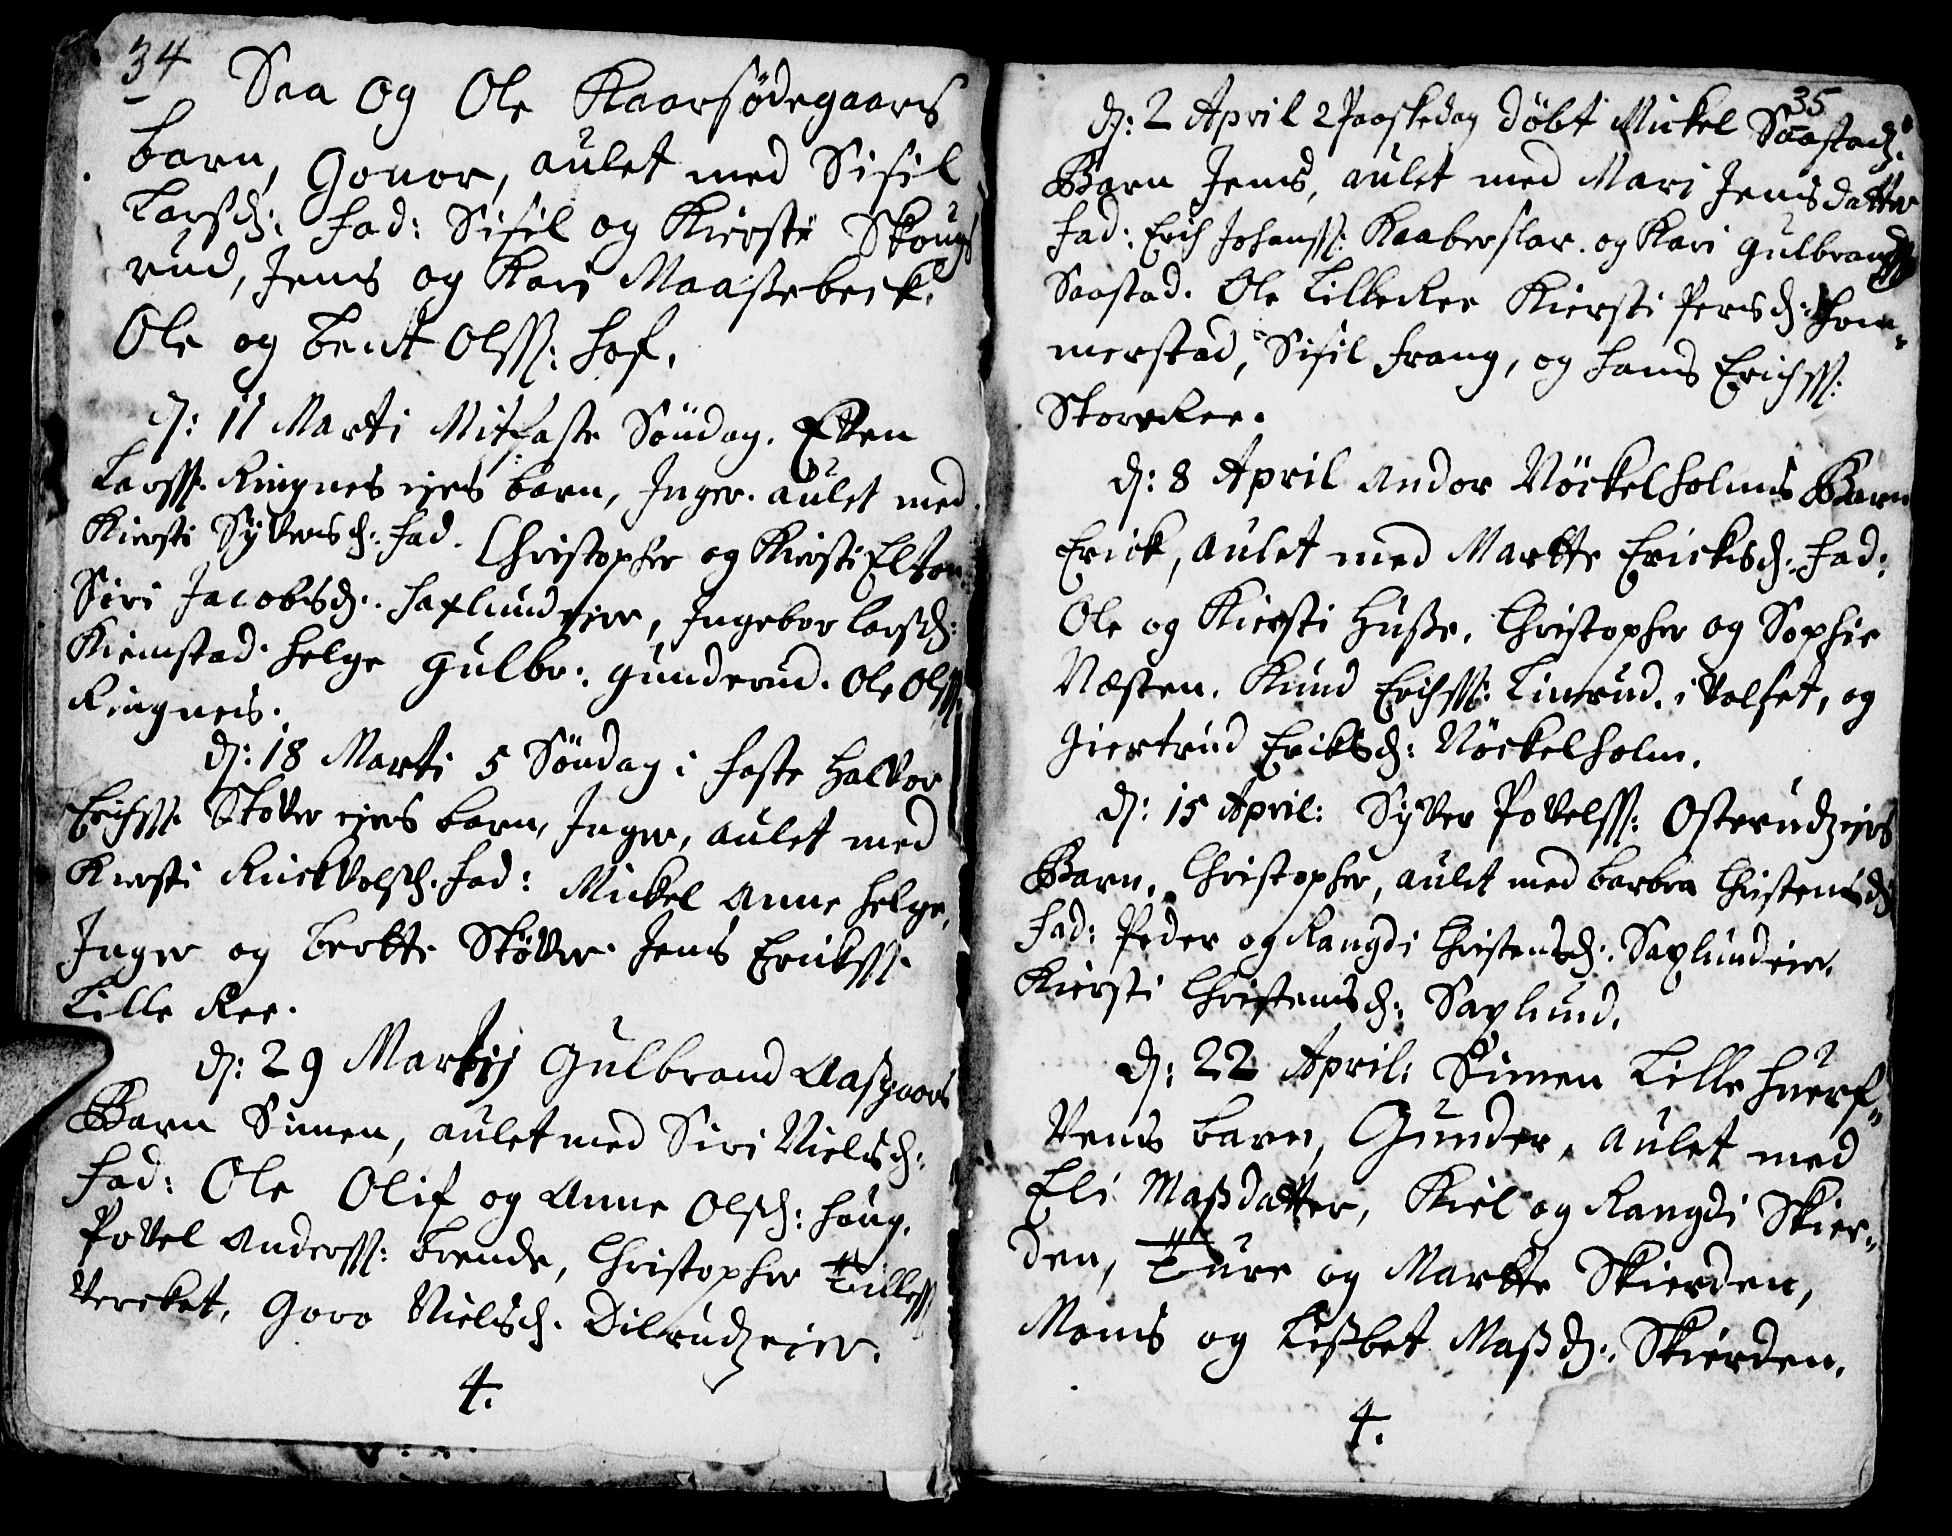 34
Saa og Ole Kaarsødegaars
barn, Gonor, aulet med Sisil
Larsd: fad: Sisil og Kiersti Skougs
rud, Jens og Kari Maassebeck.
Ole og bendt Olss: hof.
d: 11 Marti Mitfaste Söndag. Ellen
Larss. Ringnes ejes barn, Inger. aulet med
Kiersti Syversd: fad. Christopher og Kiersti Elton
Siri Jacobsd: Saxlund eier, Ingebor Larsd:
Kiemstad. helge Gulbr: Gunderud. Ole Olss.
Ringnes.
d: 18 Marti 5 Söndag i faste Halvor
Erichss. Støver ejes barn, Inger, aulet med
Kiersti fad: Mickel Anne helge,
Inger og berthe Støver Jens Erickss.
Lille Ree.
d: 29 Martij Gulbrand Aassgaars
Barn Simen, aulet med Siri Nielsd:
fad: Ole Olif og Anne Olsd: houg.
Povel Anderss: brende, Christopher Tilless
Vercket, Goro Nielsd. Dilrudzeier.
4.
35
d: 2 April 2 Paaskedag döbt Mickel Saastads
Barn Jens, aulet med Mari Jensdatter
fad: Erich Johanss: Kaaberslar. og Kari Gulbrandsd
Saastad. Ole Lilleree Kiersti Persd: hom-
merstad, Sisil frang, og hans Erichss:
Storeree.
d: 8 April Andor Nöckelholms Barn
Erick, aulet med Marthe Ericksd: fad:
Ole og Kiersti Husse, Christopher og Sophie
Næsten. Knud Erichss: Linerud. i Valset, og
Giertrud Eriksd: Nöckelholm.
d: 15 April: Syver Povelss: Osterudzejes
Barn, Christopher, aulet med barbra Christensd
fad: Peder og Rangdi Christensd: Saxlundeie.
Kiersti Christensd: Saxlund.
d: 22 April: Simen Lille huerf-
vens barn, Gunder, aulet med
Eli Massdatter, Kiel og Rangdi Skier-
den, Ture og Marthe Skierden,
Mons og Lissbet Massd: Skierden.
4.